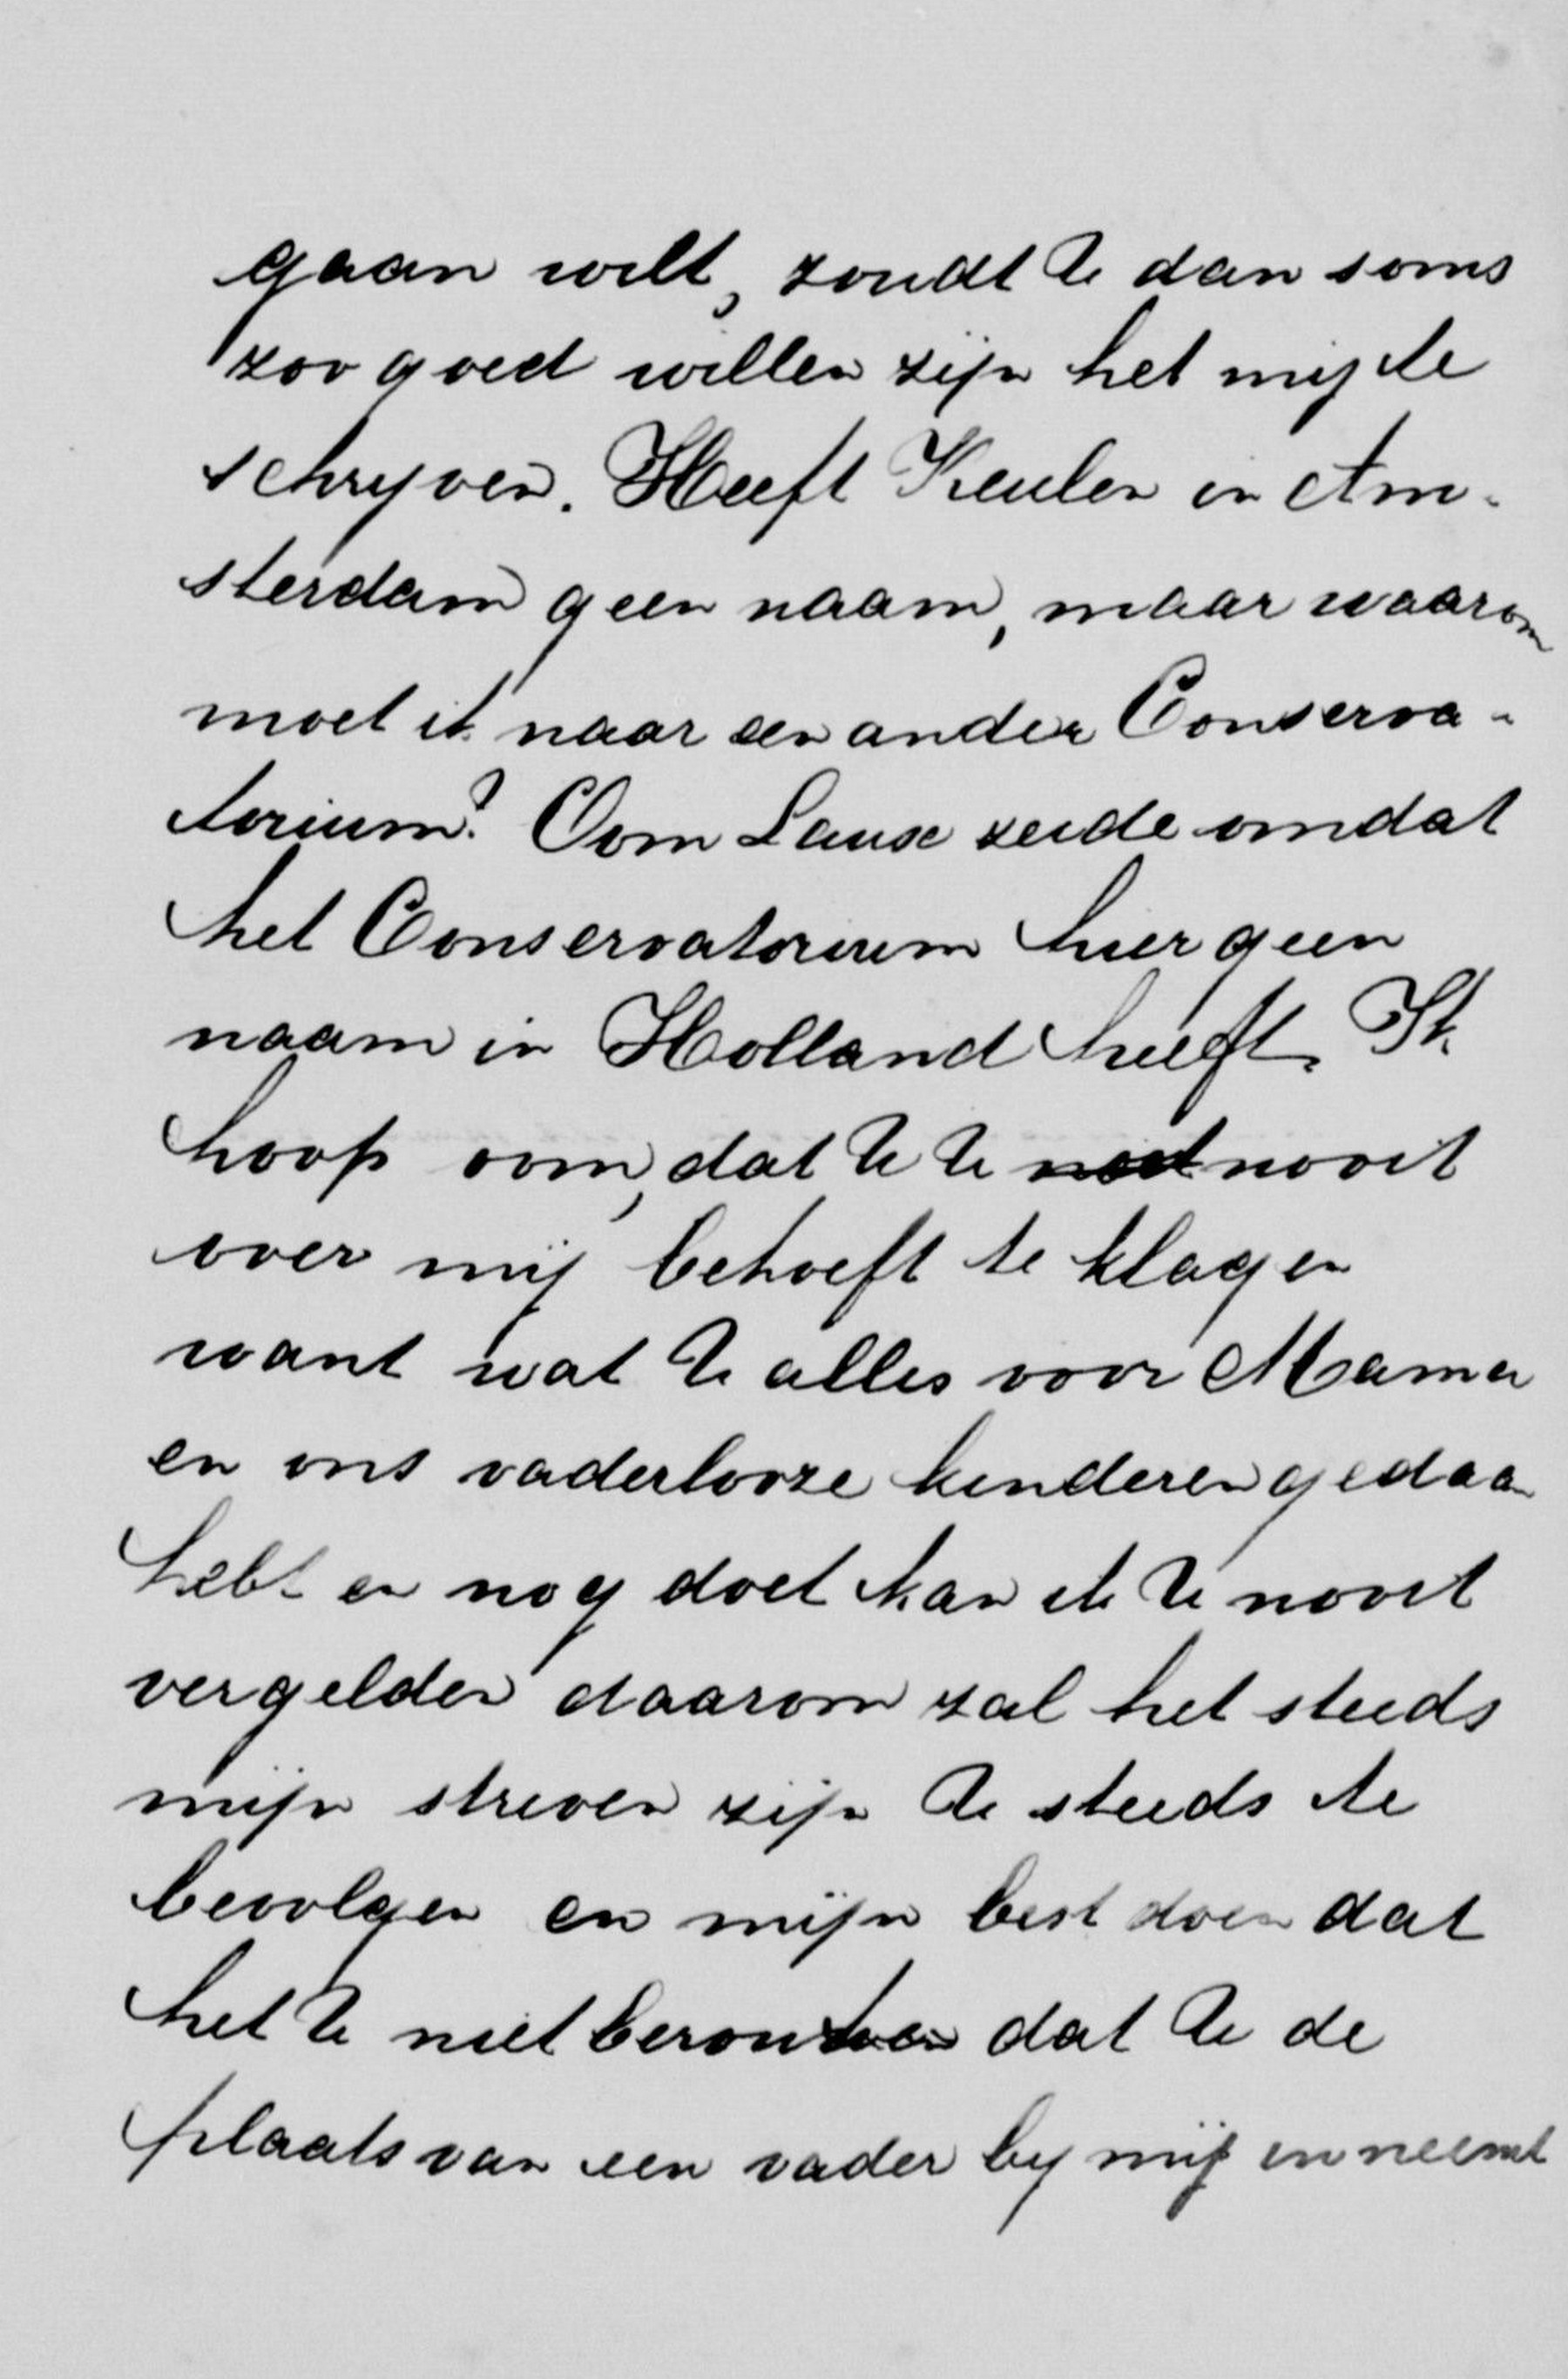 gaan wilt, zoudt U dan soms
zoo goed willen zijn het mij te
schryven. Heeft Keulen in Am-
sterdam geen naam, maar waarom
moet ik naar een ander Conserva-
torium? Oom Lause zeide omdat
het Conservatorium hier geen
naam in Holland heeft. Ik
hoop oom, dat U U nooit
over mij behoeft te klagen
want wat U alles voor Mama
en ons vaderlooze kinderen gedaan
hebt en nog doet kan ik U nooit
vergelden daarom zal het steeds
mijn streven zijn U steeds te
bevolgen en mijn best doen dat
het U niet dat U de
plaats van een vader by mij inneemt